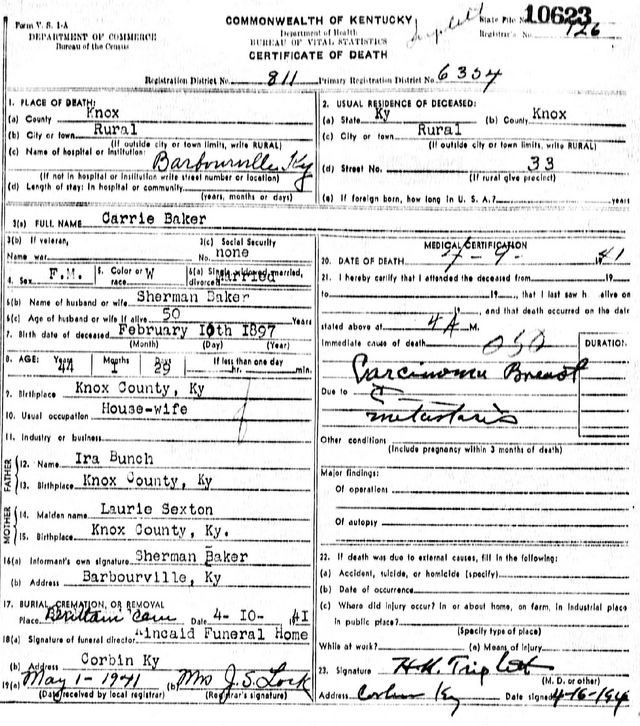 Form V. S. 1-A
DEPARTMENT OF COMMERCE
Bureau of the Census
COMMONWEALTH OF KENTUCKY
Department of Health
BUREAU OF VITAL STATISTICS
CERTIFICATE OF DEATH
Triplett
State File No. 10623
Registrar's No. 126
Registration District No. 811 Primary Registration District No. 6354
1. PLACE OF DEATH:
(a) County Knox
(b) City or town Rural
(If outside city or town limits, write RURAL)
(c) Name of hospital or institution: Barbourville Ky
(If not in hospital or institution write street number or location)
(d) Length of stay: In hospital or community
(years, months or days)
2. USUAL RESIDENCE OF DECEASED:
(a) State Ky (b) County Knox
(c) City or town Rural
(If outside city or town limits, write RURAL)
(d) Street No. 33
(If rural give precinct)
(e) If foreign born, how long in U. S. A.? years
3(a) FULL NAME Carrie Baker
3(b) If veteran, Name war
3(c) Social Security No. none
4. Sex F.M. 5. Color or race W 6(a) Single, widowed, married, divorced Married
6(b) Name of husband or wife Sherman Baker
6(c) Age of husband or wife if alive 50 Years
7. Birth date of deceased February 10th 1897
(Month) (Day) (Year)
8. AGE: Years 44 Months 1 Days 29 If less than one day hr. min.
9. Birthplace Knox County, Ky
10. Usual occupation House-wife
11. Industry or business
FATHER
12. Name Ira Bunch
13. Birthplace Knox County, Ky
MOTHER
14. Maiden name Laurie Sexton
15. Birthplace Knox County, Ky.
16(a) Informant's own signature Sherman Baker
(b) Address Barbourville, Ky
17. BURIAL, CREMATION, OR REMOVAL
Place Brittain Cem Date 4- 10- 1941
18(a) Signature of funeral director Kincaid Funeral Home
(b) Address Corbin Ky
19(a) May 1-1941 (b) Mrs J. S. Lock
(Date received by local registrar) (Registrar's signature)
MEDICAL CERTIFICATION
20. DATE OF DEATH 4-9- 1941
21. I hereby certify that I attended the deceased from 19
to 19, that I last saw h alive on
19, and that death occurred on the date
stated above at 4A M.
Immediate cause of death 050 DURATION
Carcinoma Breast
Due to c
metastasis
Other conditions
(Include pregnancy within 3 months of death)
Major findings:
Of operations
Of autopsy
22. If death was due to external causes, fill in the following:
(a) Accident, suicide, or homicide (specify)
(b) Date of occurrence
(c) Where did injury occur? In or about home, on farm, in industrial place
in public place?
(Specify type of place)
While at work? (e) Means of injury
23. Signature H.K. Triplett
(M. D. or other)
Address Corbin Ky Date signed 4-16-194